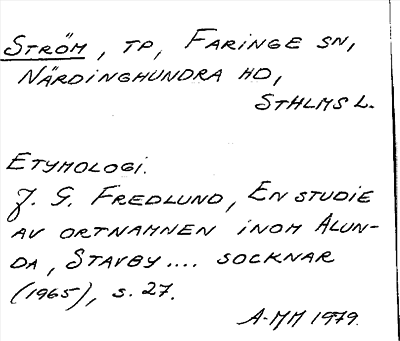 STRÖM, TP, FARINGE SN,
NÄRDINGHUNDRA HD,
STHLMS L.
ETYMOLOGI.
J. G. FREDLUND, EN STUDIE
AV ORTNAMNEN INOM ALUN-
DA, STAVBY.... SOCKNAR
(1965), S. 27.
A-MM 1979.